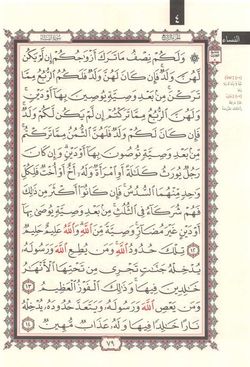 ٤
النساء
الجزء الرابع
سورة النساء
۞ وَلَكُمْ نِصْفُ مَا تَرَكَ أَزْوَٰجُكُمْ إِن لَّمْ يَكُن
لَّهُنَّ وَلَدٌ فَإِن كَانَ لَهُنَّ وَلَدٌ فَلَكُمُ ٱلرُّبُعُ مِمَّا
تَرَكْنَ مِنۢ بَعْدِ وَصِيَّةٍ يُوصِينَ بِهَآ أَوْ دَيْنٍ
وَلَهُنَّ ٱلرُّبُعُ مِمَّا تَرَكْتُمْ إِن لَّمْ يَكُن لَّكُمْ وَلَدٌ
فَإِن كَانَ لَكُمْ وَلَدٌ فَلَهُنَّ ٱلثُّمُنُ مِمَّا تَرَكْتُم
مِّنۢ بَعْدِ وَصِيَّةٍ تُوصُونَ بِهَآ أَوْ دَيْنٍ وَإِن كَانَ
رَجُلٌ يُورَثُ كَلَٰلَةً أَوِ ٱمْرَأَةٌ وَلَهُۥٓ أَخٌ أَوْ أُخْتٌ فَلِكُلِّ
وَٰحِدٍ مِّنْهُمَا ٱلسُّدُسُ فَإِن كَانُوٓا۟ أَكْثَرَ مِن ذَٰلِكَ
فَهُمْ شُرَكَآءُ فِى ٱلثُّلُثِ مِنۢ بَعْدِ وَصِيَّةٍ يُوصَىٰ بِهَآ
أَوْ دَيْنٍ غَيْرَ مُضَآرٍّ وَصِيَّةً مِّنَ ٱللَّهِ وَٱللَّهُ عَلِيمٌ حَلِيمٌ
١٢ تِلْكَ حُدُودُ ٱللَّهِ وَمَن يُطِعِ ٱللَّهَ وَرَسُولَهُۥ
يُدْخِلْهُ جَنَّٰتٍ تَجْرِى مِن تَحْتِهَا ٱلْأَنْهَٰرُ
خَٰلِدِينَ فِيهَا وَذَٰلِكَ ٱلْفَوْزُ ٱلْعَظِيمُ ١٣
وَمَن يَعْصِ ٱللَّهَ وَرَسُولَهُۥ وَيَتَعَدَّ حُدُودَهُۥ يُدْخِلْهُ
نَارًا خَٰلِدًا فِيهَا وَلَهُۥ عَذَابٌ مُّهِينٌ ١٤
٧٩